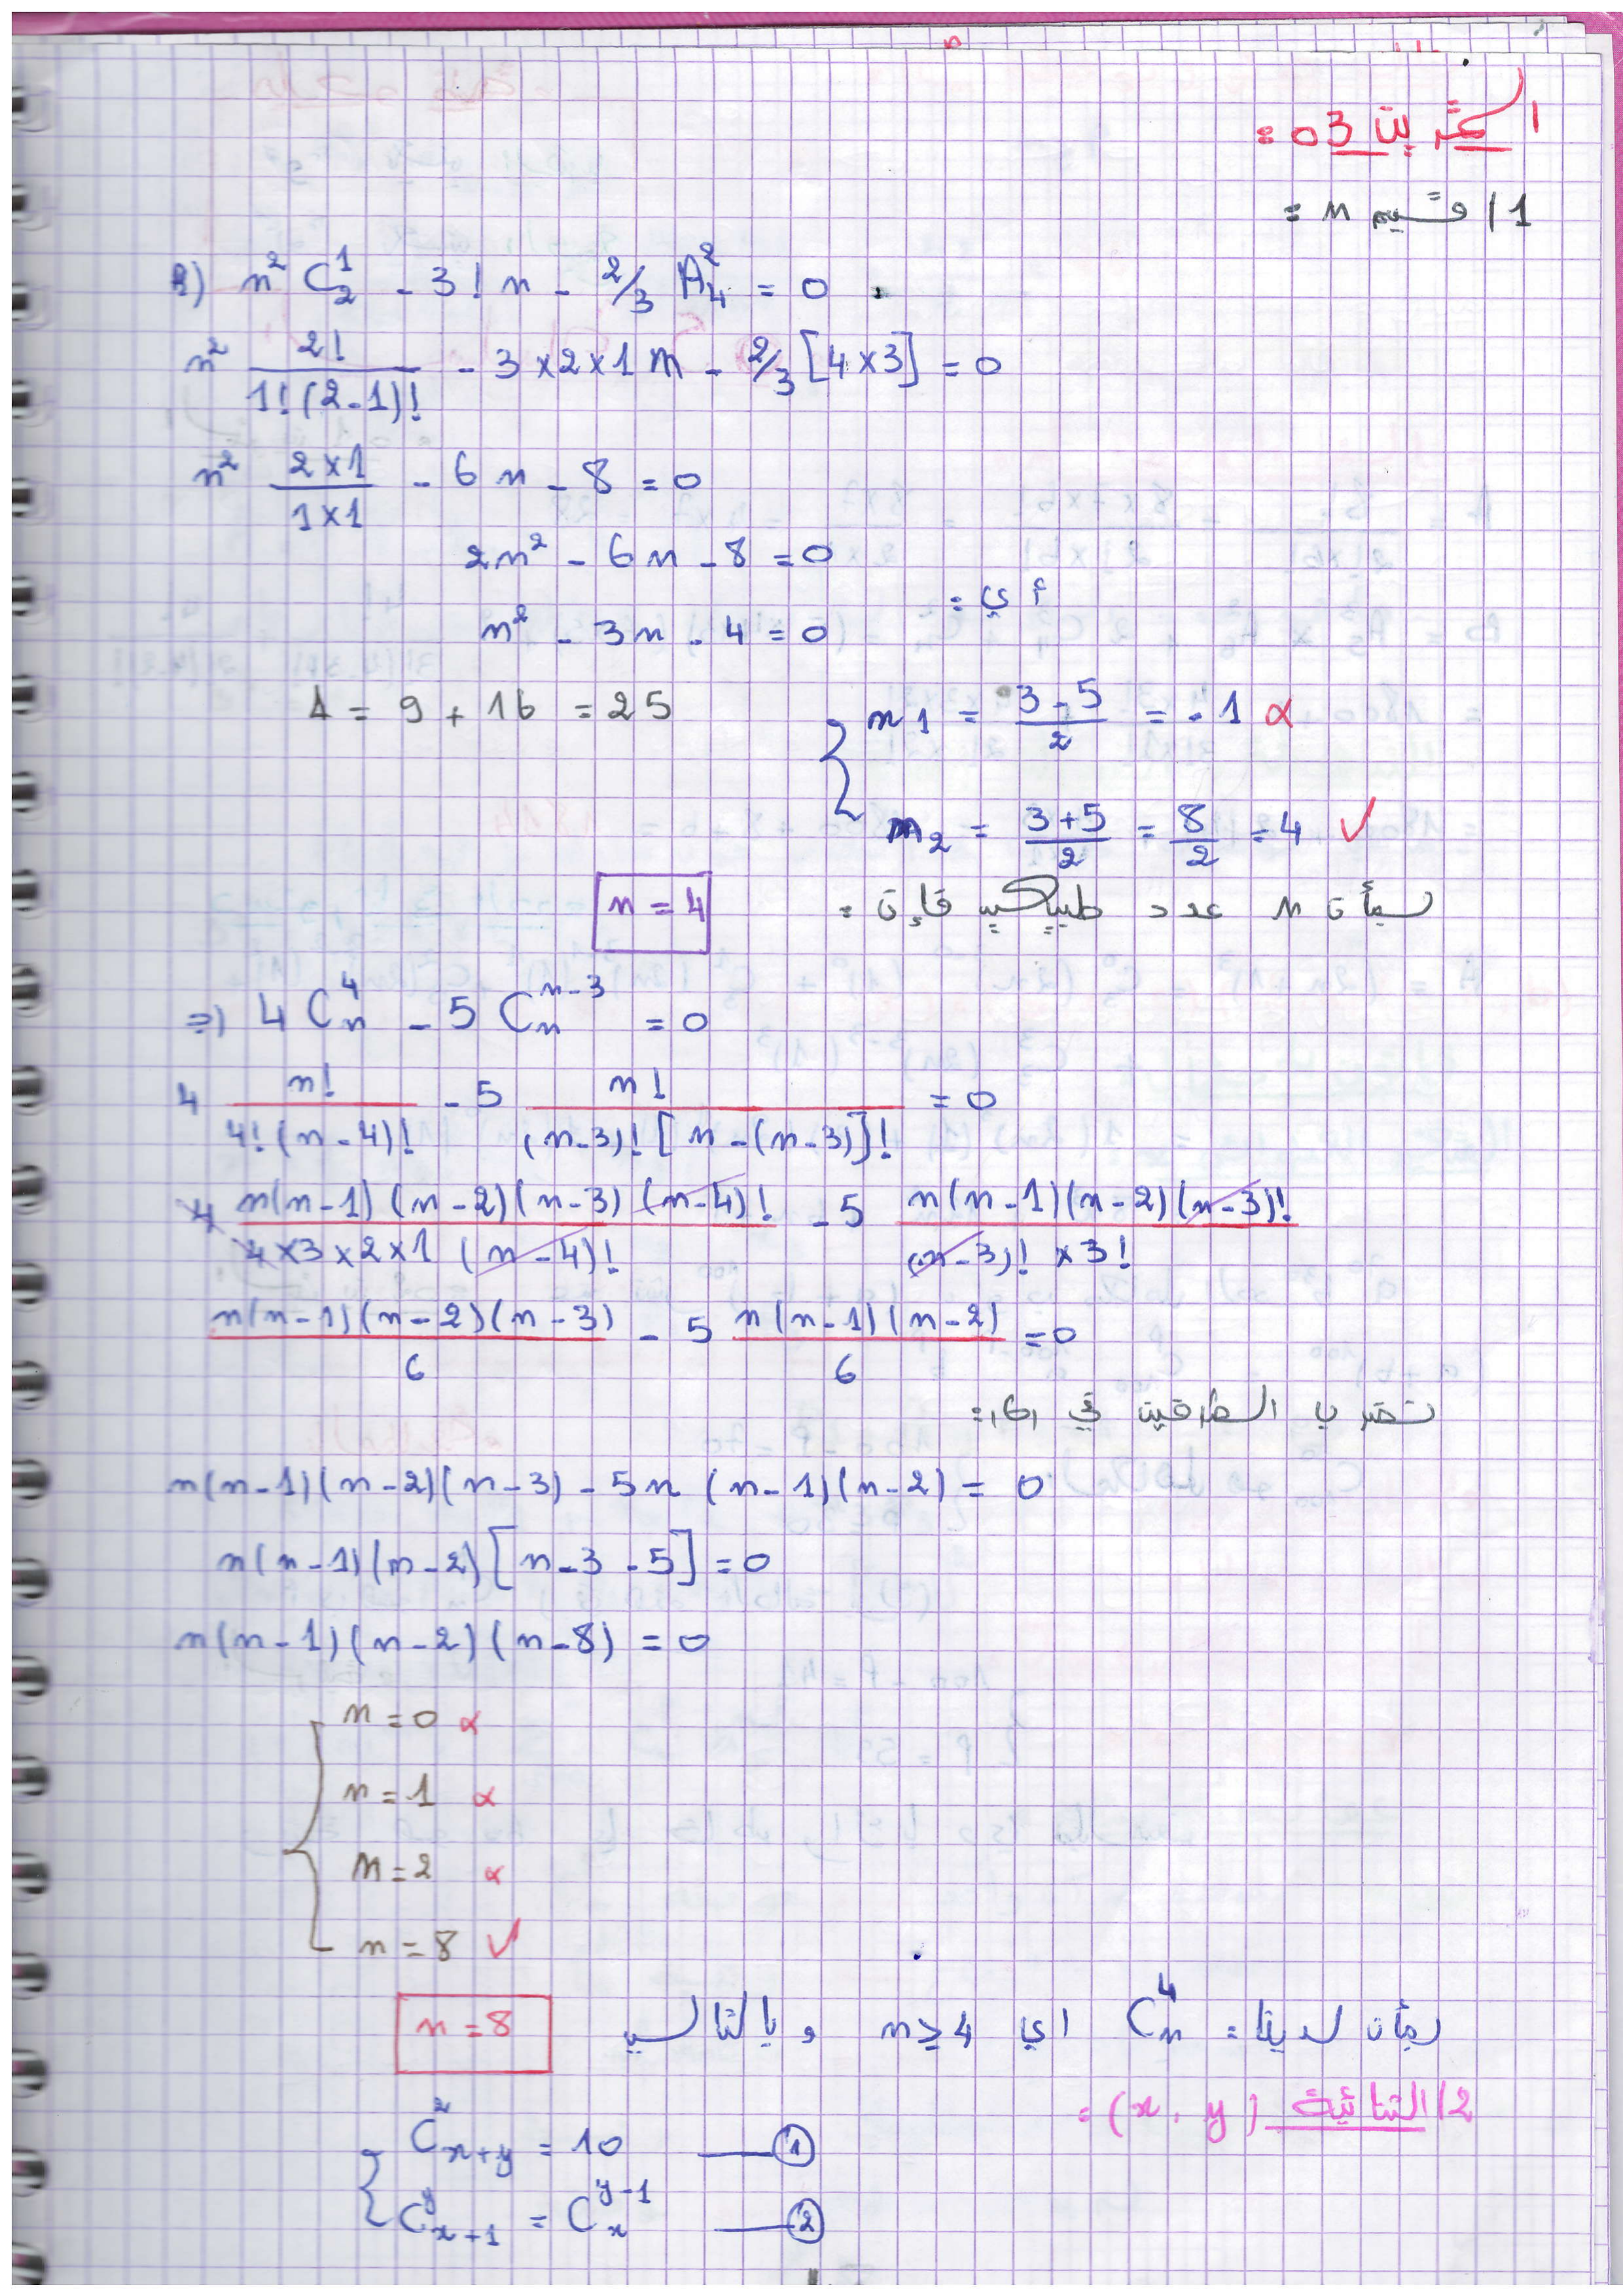 التمرين 03 =
1/ قيم n =
1) n² C₂¹ - 3! n - 2/3 A₄² = 0
n² 2!/(1!(2-1)!) - 3×2×1 n - 2/3 [4×3] = 0
n² (2×1)/(1×1) - 6n - 8 = 0
2n² - 6n - 8 = 0
أي =
n² - 3n - 4 = 0
Δ = 9 + 16 = 25
n1 = (3-5)/2 = -1 ×
n2 = (3+5)/2 = 8/2 = 4 ✓
بمأن n عدد طبيعي فإن = n = 4
=) 4 Cₙ⁴ - 5 Cₙⁿ⁻³ = 0
4 n!/(4!(n-4)!) - 5 n!/((n-3)![n-(n-3)]!) = 0
4 n(n-1)(n-2)(n-3)(n-4)!/(4×3×2×1(n-4)!) - 5 n(n-1)(n-2)(n-3)!/((n-3)!×3!)
n(n-1)(n-2)(n-3)/6 - 5 n(n-1)(n-2)/6 = 0
نضرب الطرفين في (6)=
n(n-1)(n-2)(n-3) - 5n(n-1)(n-2) = 0
n(n-1)(n-2)[n-3-5] = 0
n(n-1)(n-2)(n-8) = 0
n = 0 ×
n = 1 ×
n = 2 ×
n = 8 ✓
بمأن لدينا = Cₙ⁴ اي n ≥ 4 و بالتالي n = 8
2/ الثنائية (x, y) =
C²ₓ₊ᵧ = 10 —①
Cʸₓ₊₁ = Cʸ⁻¹ₓ —②